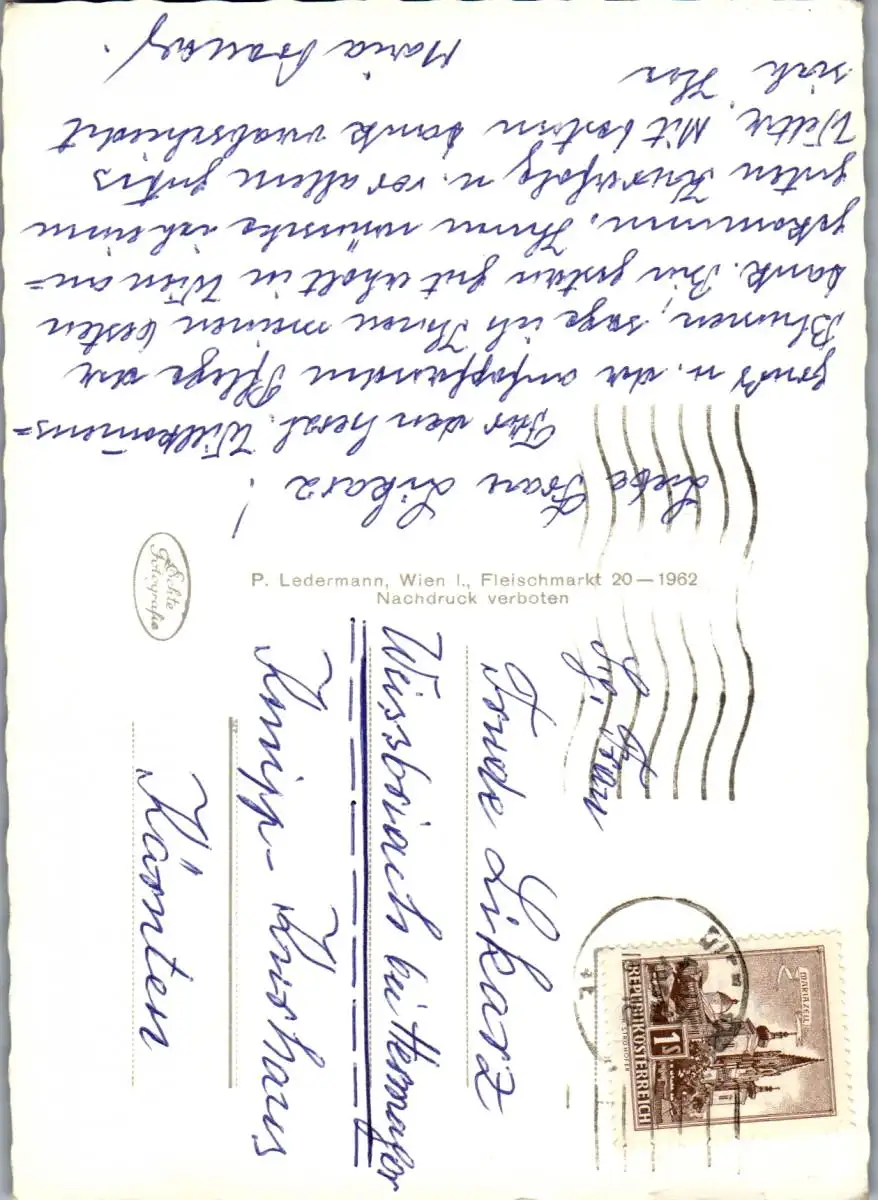 Liebe Frau Likarz!
Für den herzl. Willkommens=
gruß u. der aufopfernden Pflege der
Blumen, sage ich Ihnen meinen besten
Dank. Bin gestern gut erholt in Wien an=
gekommen. Ihnen wünsche ich einen
guten Kurerfolg u. vor allem gutes
Wetter. Mit bestem Dank verabschiedet
sich Ihre
Maria
P. Ledermann, Wien I., Fleischmarkt 20 — 1962
Nachdruck verboten
Echte
Fotografie
Frau
Likarz
Weissbriach bei Hermagor
Kneipp-Kurhaus
Kärnten
MARIAZELL
REPUBLIK ÖSTERREICH
1 S